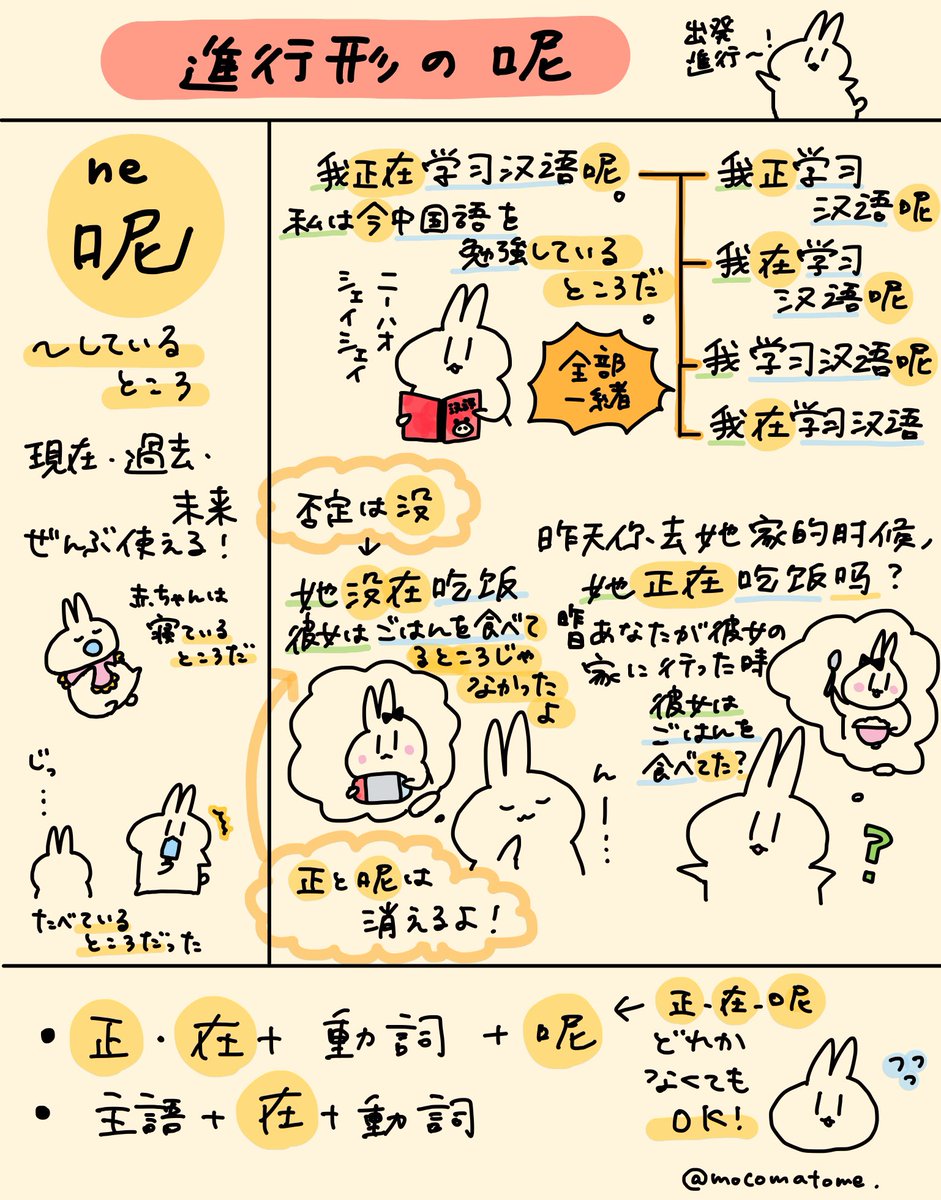 進行形の呢
出発
進行~!
ne
呢
~している
ところ
現在・過去・
未来
ぜんぶ使える!
赤ちゃんは
寝ている
ところだ
じっ……
たべている
ところだった
我正在学习汉语呢
私は今中国語を
勉強している
ところだ
ニーハオ
シェイシェイ
汉语
全部
一緒
我正学习
汉语呢
我在学习
汉语呢
我学习汉语呢
我在学习汉语
否定は没
↓
她没在吃饭
彼女はごはんを食べて
るところじゃ
なかった
よ
んー…
正と呢は
消えるよ!
昨天你去她家的时候,
她正在吃饭吗?
昨日あなたが彼女の
家に行った時
彼女は
ごはんを
食べてた?
?
• 正・在+動詞+呢
← 正・在・呢
どれか
なくても
OK!
• 主語+在+動詞
フフッ
@mocomatome.